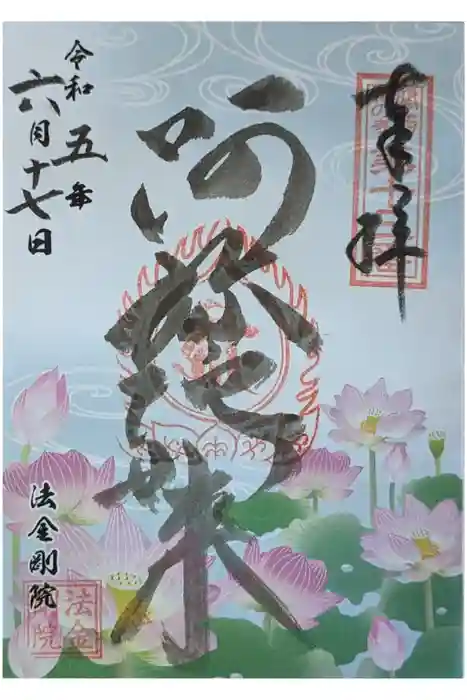 奉拝
阿弥陀如来
令和五年
六月十七日
法金剛院
法金
院